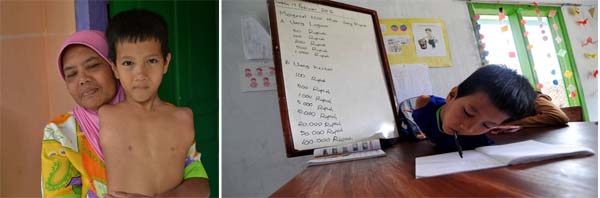 Mengenal Nilai Mata Uang Rupiah
A. Uang Logam
50 Rupiah
100 Rupiah
200 Rupiah
500 Rupiah
1000 Rupiah
B. Uang Kertas
100 Rupiah
500 Rupiah
1.000 Rupiah
5.000 Rupiah
10.000 Rupiah
20.000 Rupiah
50.000 Rupiah
100.000 Rupiah